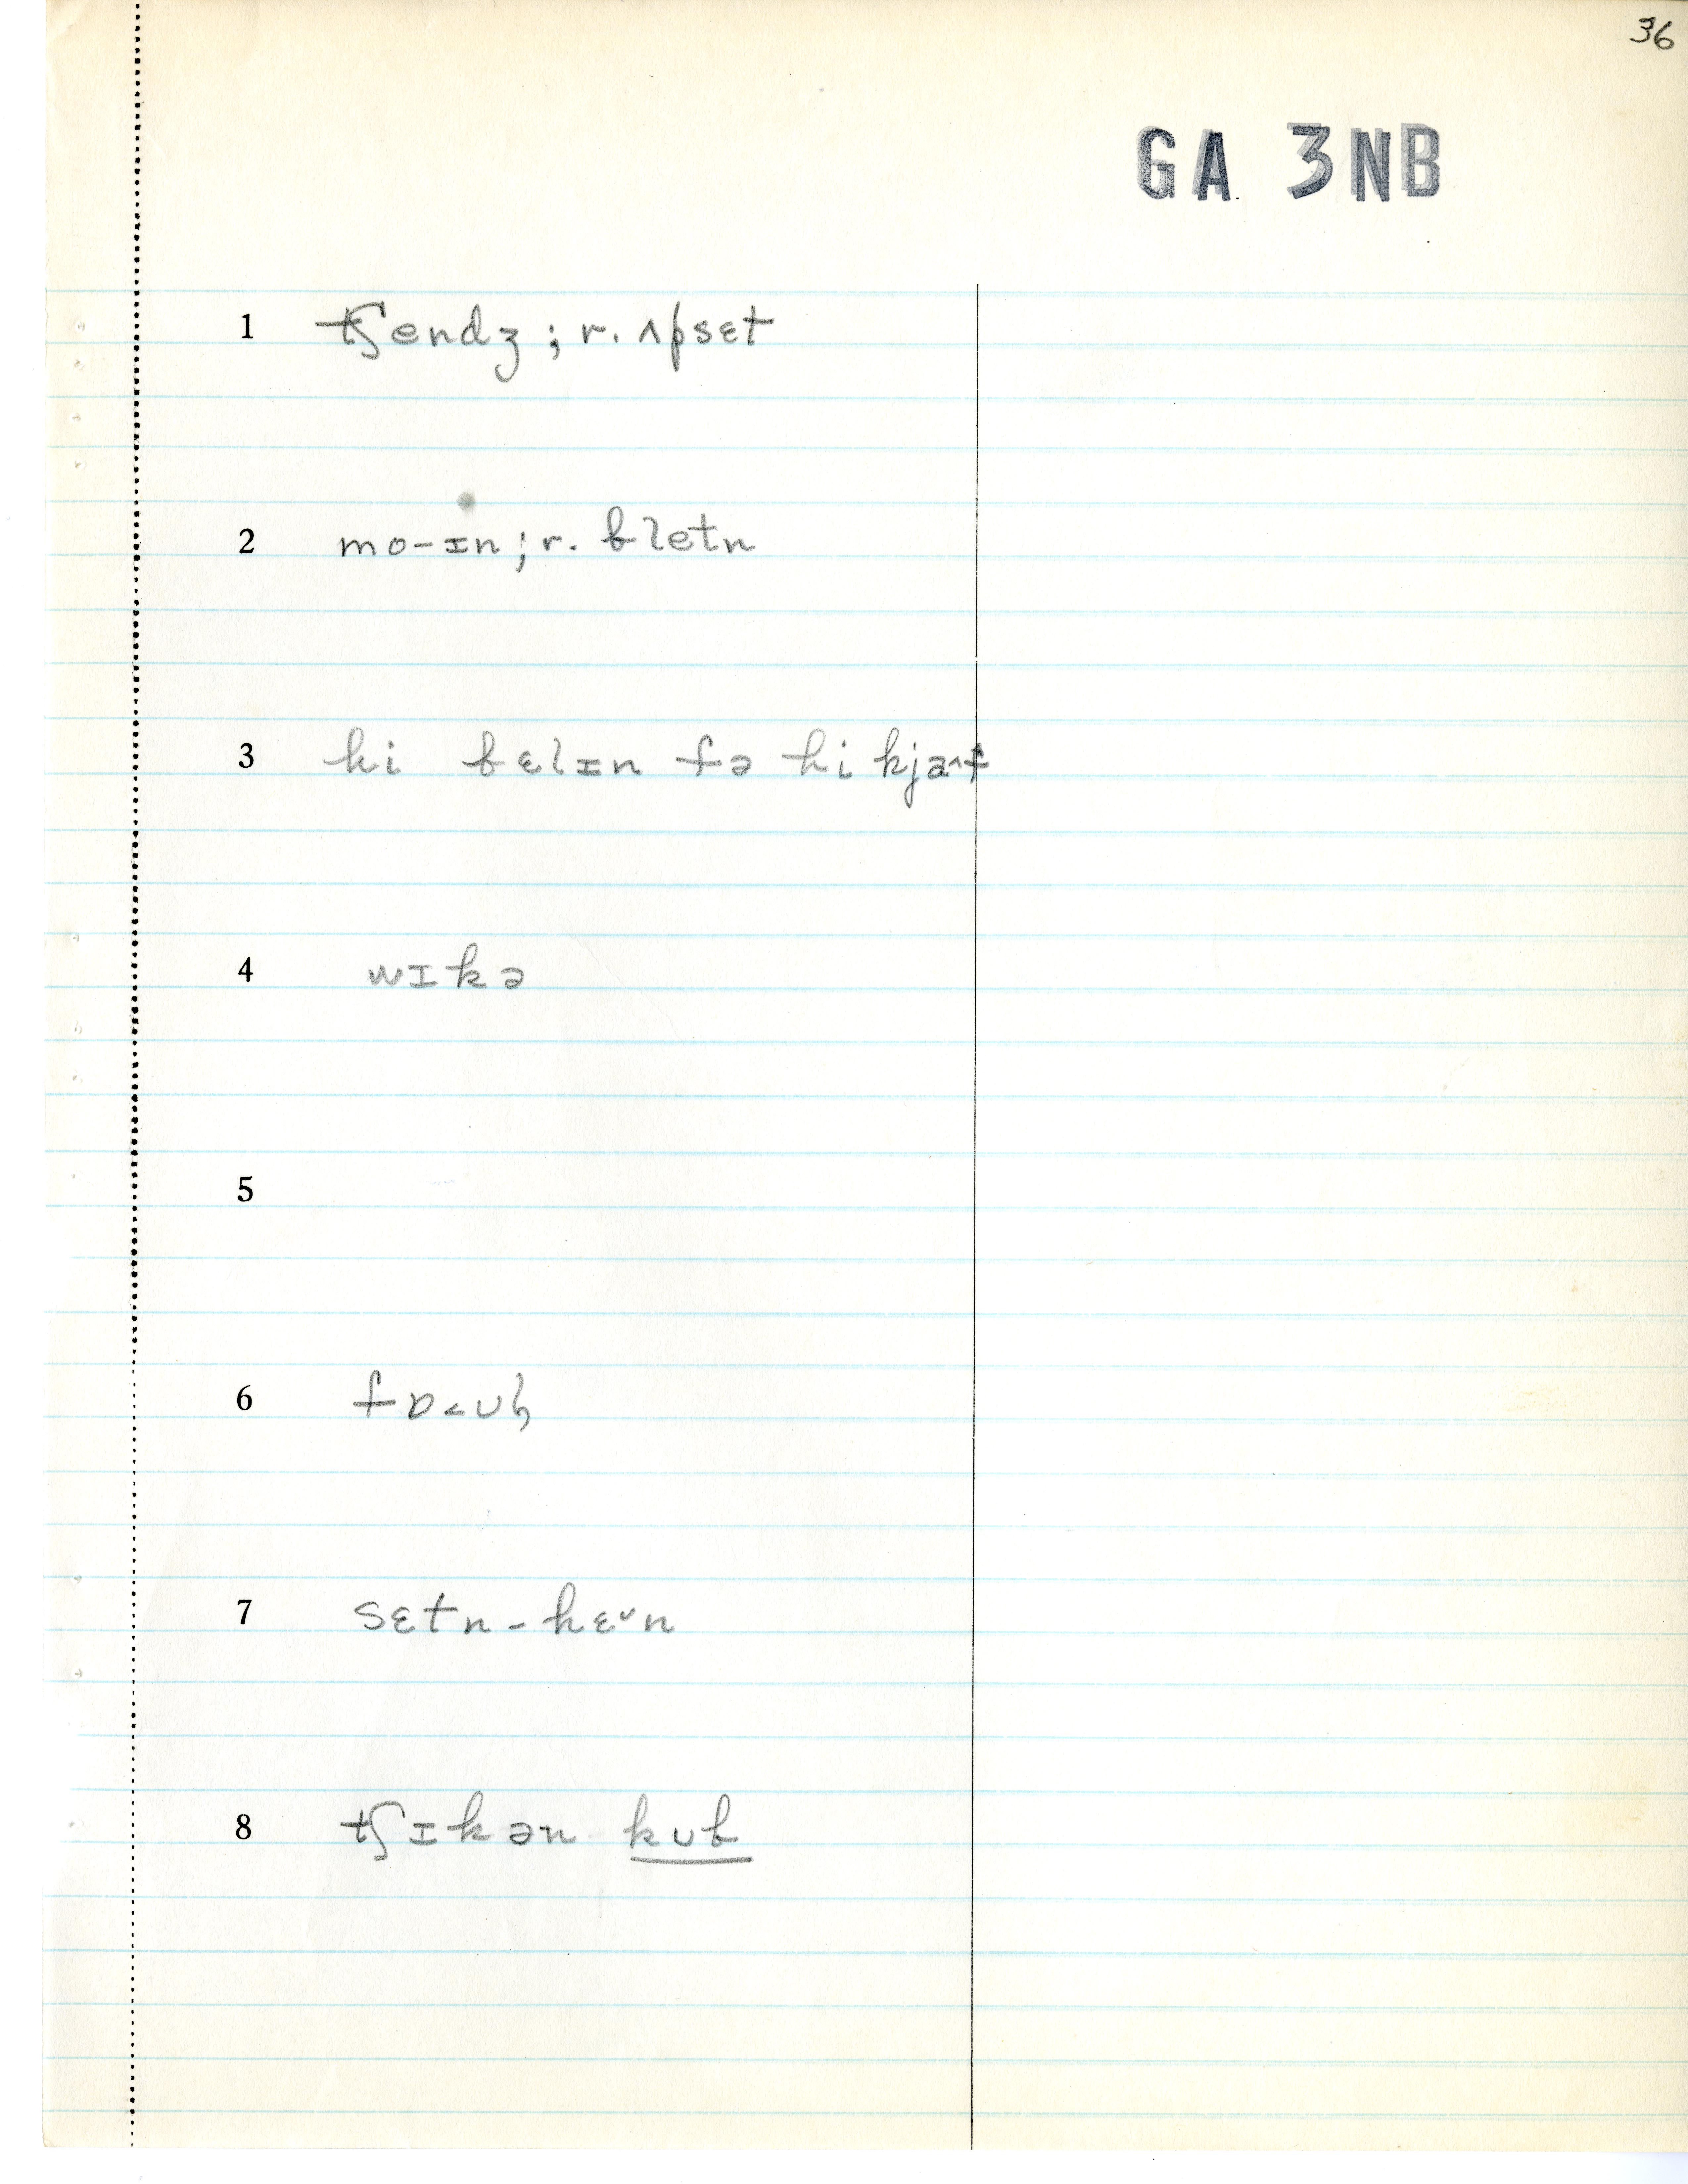 36
GA 3NB
1 tʃendʒ; r. ʌpset
2 mo-ɪn; r. bletn
3 hi bɛlɪn fə hi kjaˆf
4 wɪkə
5
6 fɒ˂ʊɫ
7 sɛtn-hɛˇn
8 tʃɪkən kʊb